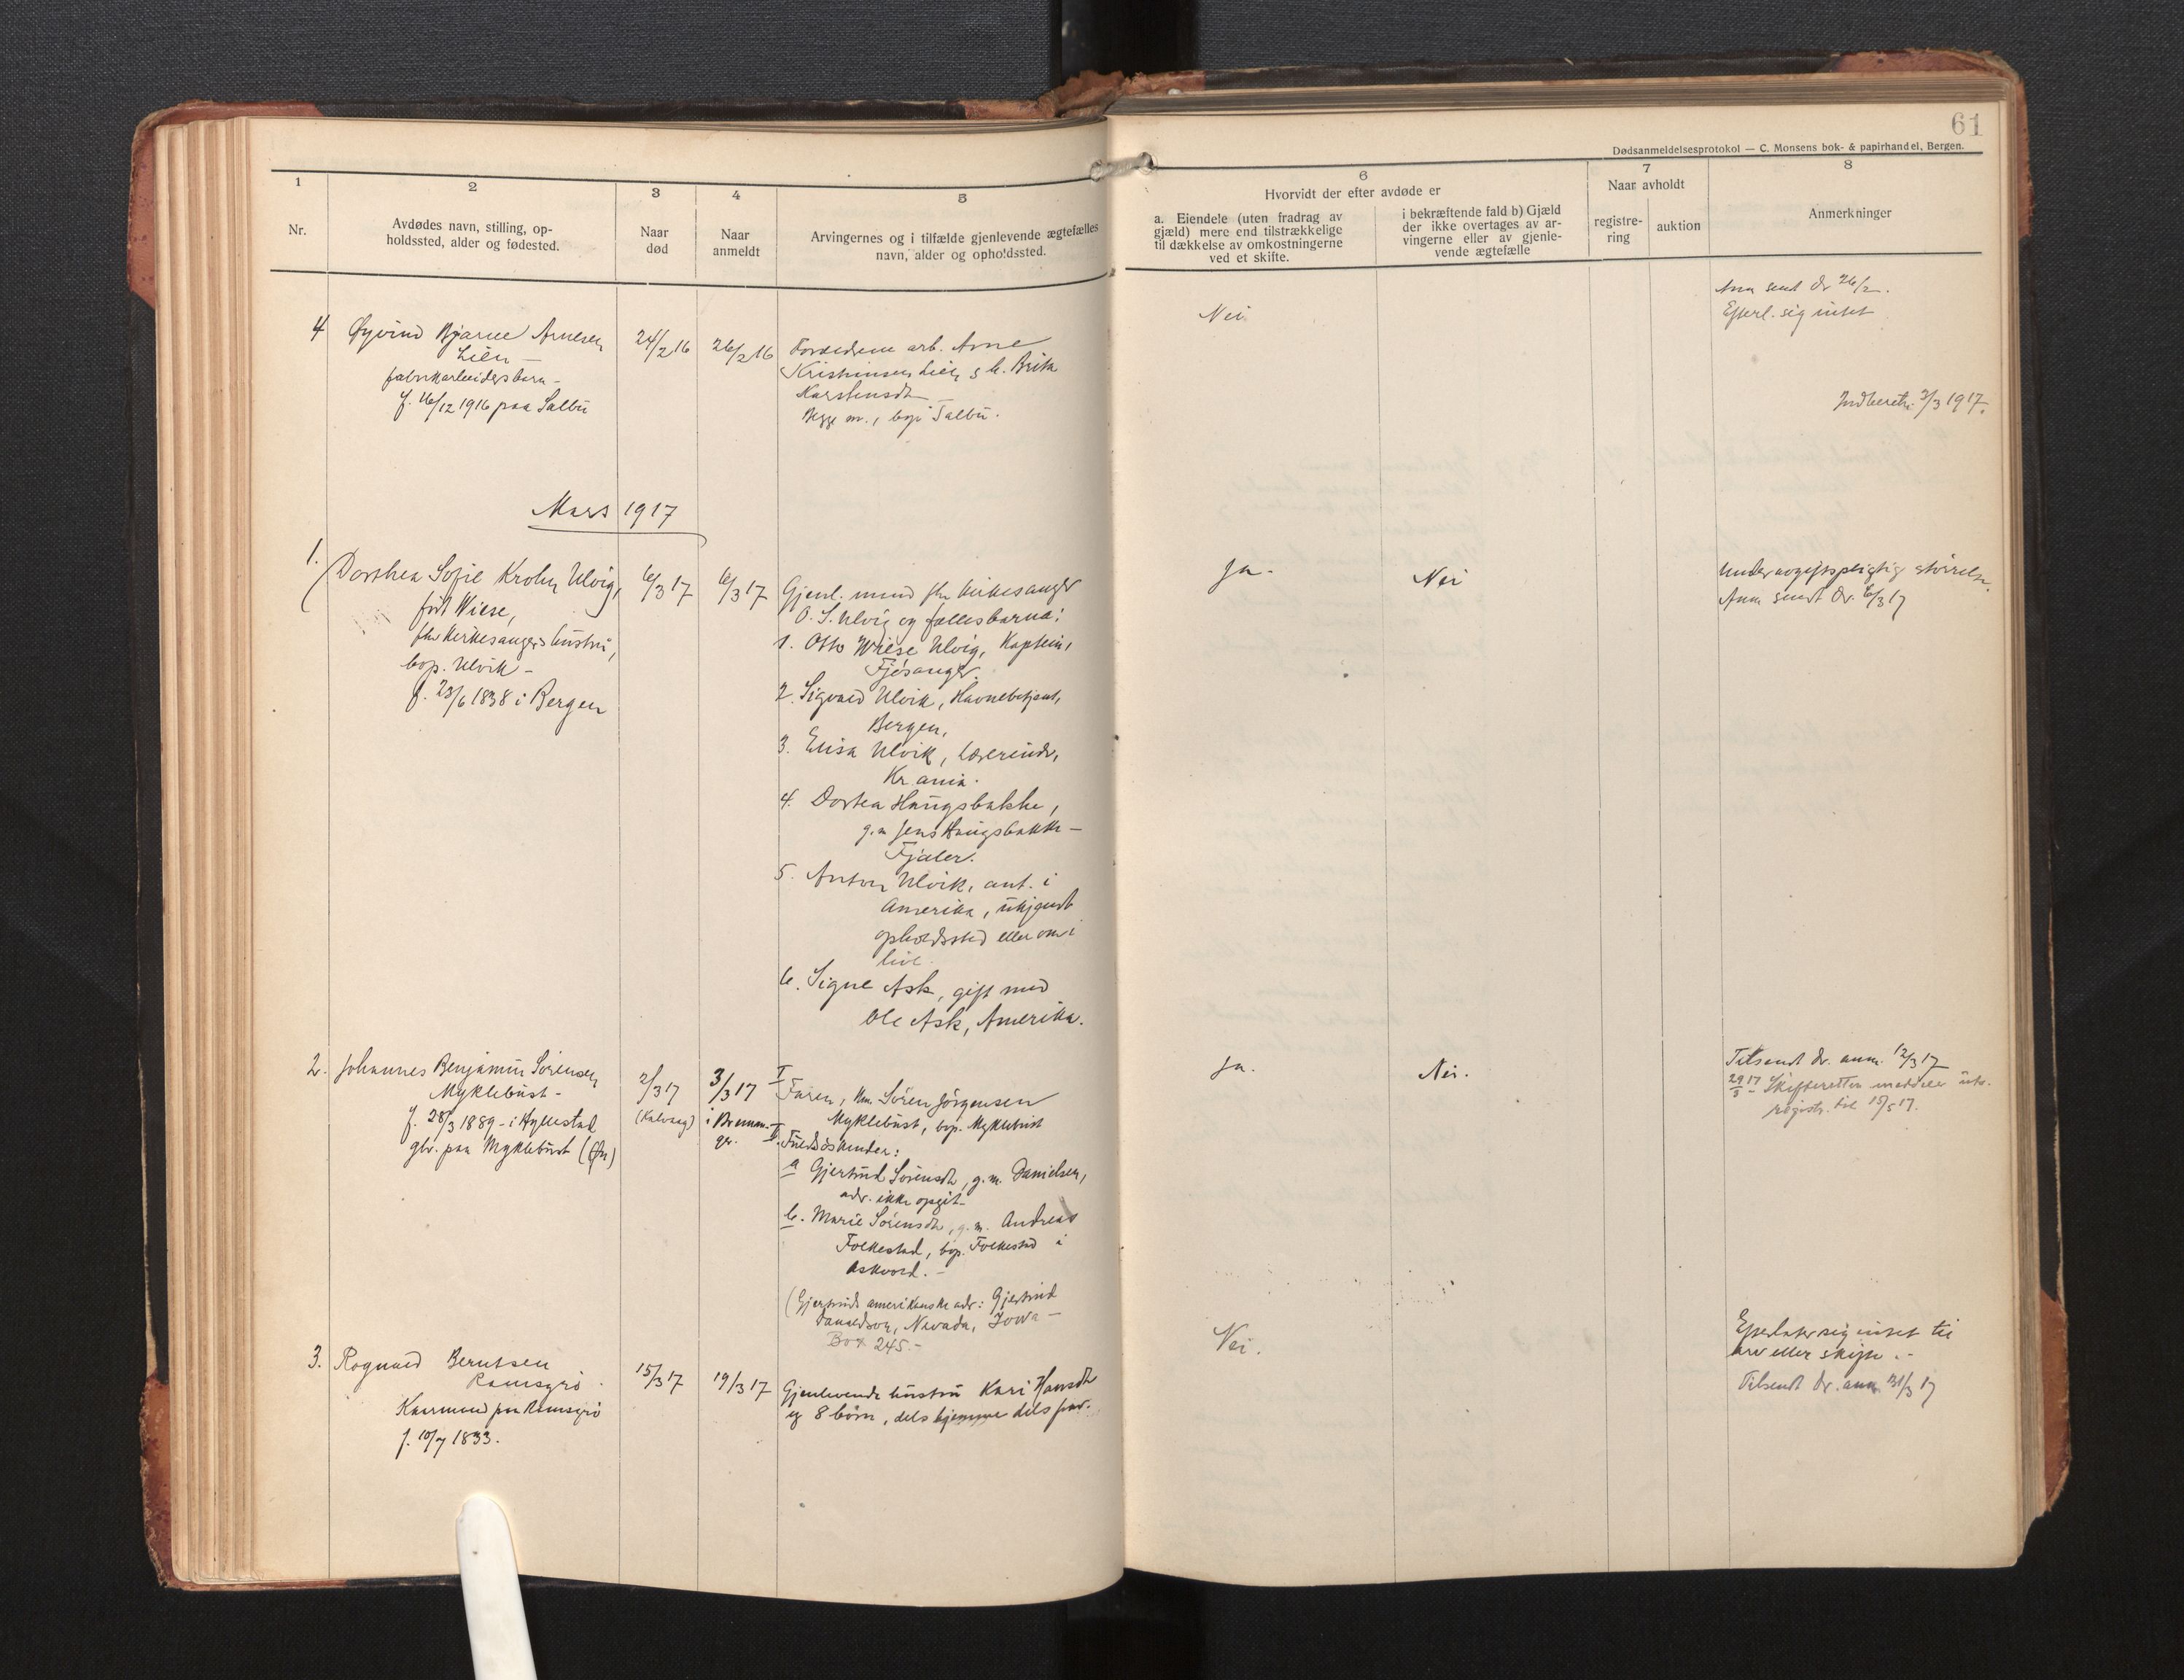 61
Dødsanmeldelsesprotokol — C. Monsens bok- & papirhandel, Bergen.
1
2
3
4
5
6
7
8
Nr.
Avdødes navn, stilling, op-
holdssted, alder og fødested.
Naar
død
Naar
anmeldt
Arvingernes og i tilfælde gjenlevende ægtefælles
navn, alder og opholdssted.
Hvorvidt der efter avdøde er
a. Eiendele (uten fradrag av
gjæld) mere end tilstrækkelige
til dækkelse av omkostningerne
ved et skifte.
i bekræftende fald b) Gjæld
der ikke overtages av ar-
vingerne eller av gjenle-
vende ægtefælle
Naar avholdt
registre-
ring
auktion
Anmerkninger
4 Øyvind Bjarne Arnesen
Lien —
fabrikarbeidersbarn -
f. 16/12 1916 paa Salbu
24/2 16
26/2 16
Forældrene arb. Arne
Kristiansen Lien & h. Brita
Karstensdt
Begge m., bop. Salbu.
Nei
Anm sendt Dr 26/2.
Efterl. sig intet
Indberett. 3/3 1917.
Mars 1917
1. Dorthea Sofie Krohn Ulvig,
født Wiese,
fhv kirkesangers hustru,
bop. Ulvik -
f. 23/6 1838 i Bergen
6/3 17
6/3 17
Gjenl. mand fhv kirkesanger
O. S. Ulvig og fællesbarna:
1. Otto Wiese Ulvig, Kaptein,
Fjøsanger.
2. Sigvald Ulvik, Havnebetjent,
Bergen,
3. Elisa Ulvik, lærerinde,
Kr.ania.
4. Dortea Haugsbakke,
g. m Jens Haugsbakke —
Fjaler.
5. Anton Ulvik, ant. i
Amerika, ukjendt
opholdssted eller om i
live.
6. Signe Ask, gift med
Ole Ask, Amerika.
Ja.
Nei
Under avgiftspligtig størrelse.
Anm sendt Dr. 6/3 17
2. Johannes Benjamin Sørensen
Myklebust -
f. 28/3 1889 - i Hyllestad
gbr. paa Myklebust (Øn)
2/3 17
(Kalvaag)
3/3 17
i Breman-
ger.
I Faren, Søren Jørgensen
Myklebust, bop. Myklebust
II. Fuldsøskender:
a Gjertrud Sørensdt, g. m. Danielsen,
adr. ikke opgit
b. Marie Sørensdt, g. m. Andreas
Folkestad, bop. Folkestad i
Askvoll. -
(Gjertruds amerikanske adr: Gjertrud
Danielson, Nevada, Iowa —
Box 245. -
Ja.
Nei.
Tilsendt dr. anm. 12/3 17
29/3 17 - Skifteretten meddeler uts.
registr. til 15/5 17.
3. Ragnvald Berntsen
Ramsgrø
Kaarmand paa Ramsgrø
f. 10/7 1833.
15/3 17
19/3 17
Gjenlevende hustru Kari Hansdt
og 8 børn, dels hjemme dels frav.
Nei.
Efterlater sig intet til
arv eller skifte. -
Tilsendt Dr. anm 31/3 17